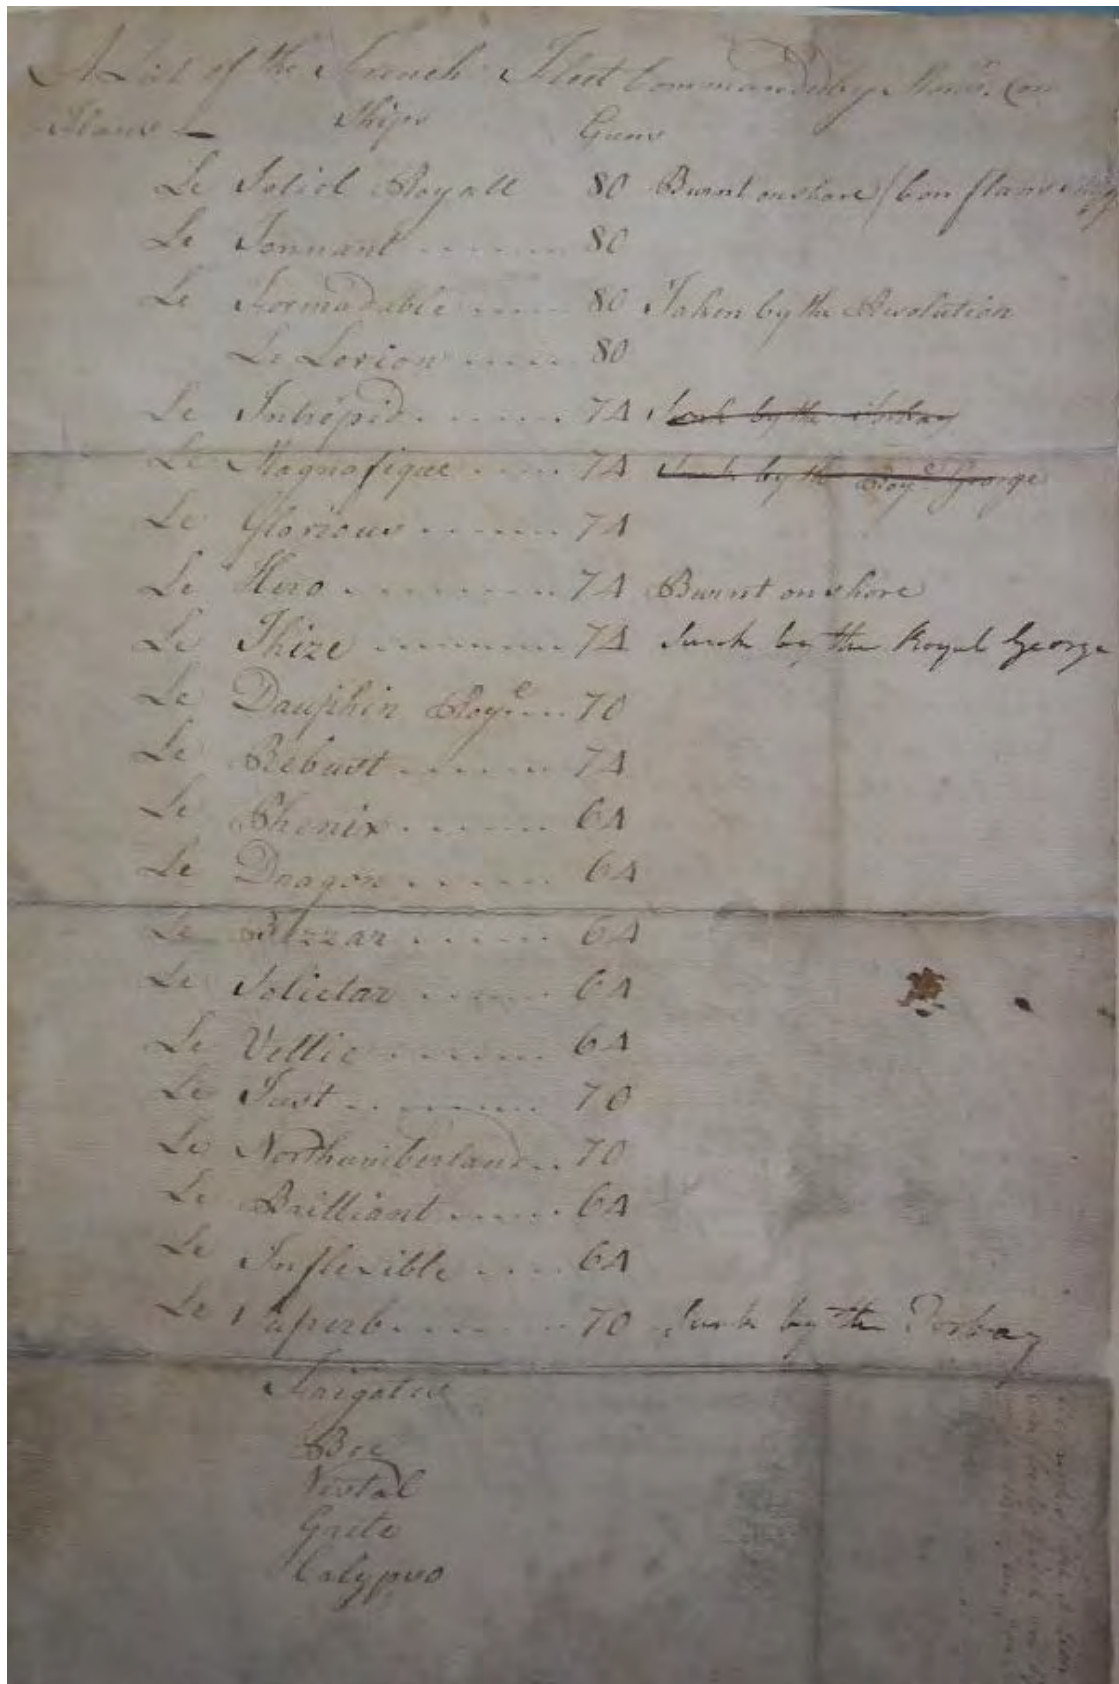 A List of the French Fleet Commanded by Monsr. Con
flans Ships Guns
Le Soliel Royall 80 Burnt on shore (Conflans
Le Tonnant ........ 80
Le Formadable ..... 80 Taken by the Resolution
Le Lorion ..... 80
Le Intrépid ...... 74 Sunk by the Torbay
Le Magnafique .... 74 Sunk by the Roy.l George
Le Glorious ...... 74
Le Hero ......... 74 Burnt on shore
Le Thize ........ 74 Sunk by the Royal George
Le Dauphin Roy.e ... 70
Le Rebust ....... 74
Le Phenix ....... 64
Le Dragon ...... 64
Le Bizzar ...... 64
Le Solietar ..... 64
Le Vellie ....... 64
Le Just ........ 70
Le Northumberland .. 70
Le Brilliant ..... 64
Le Inflexible .... 64
Le Superb ...... 70 Sunk by the Torbay
Fraigates
Boe
Vestal
Grete
Calypso